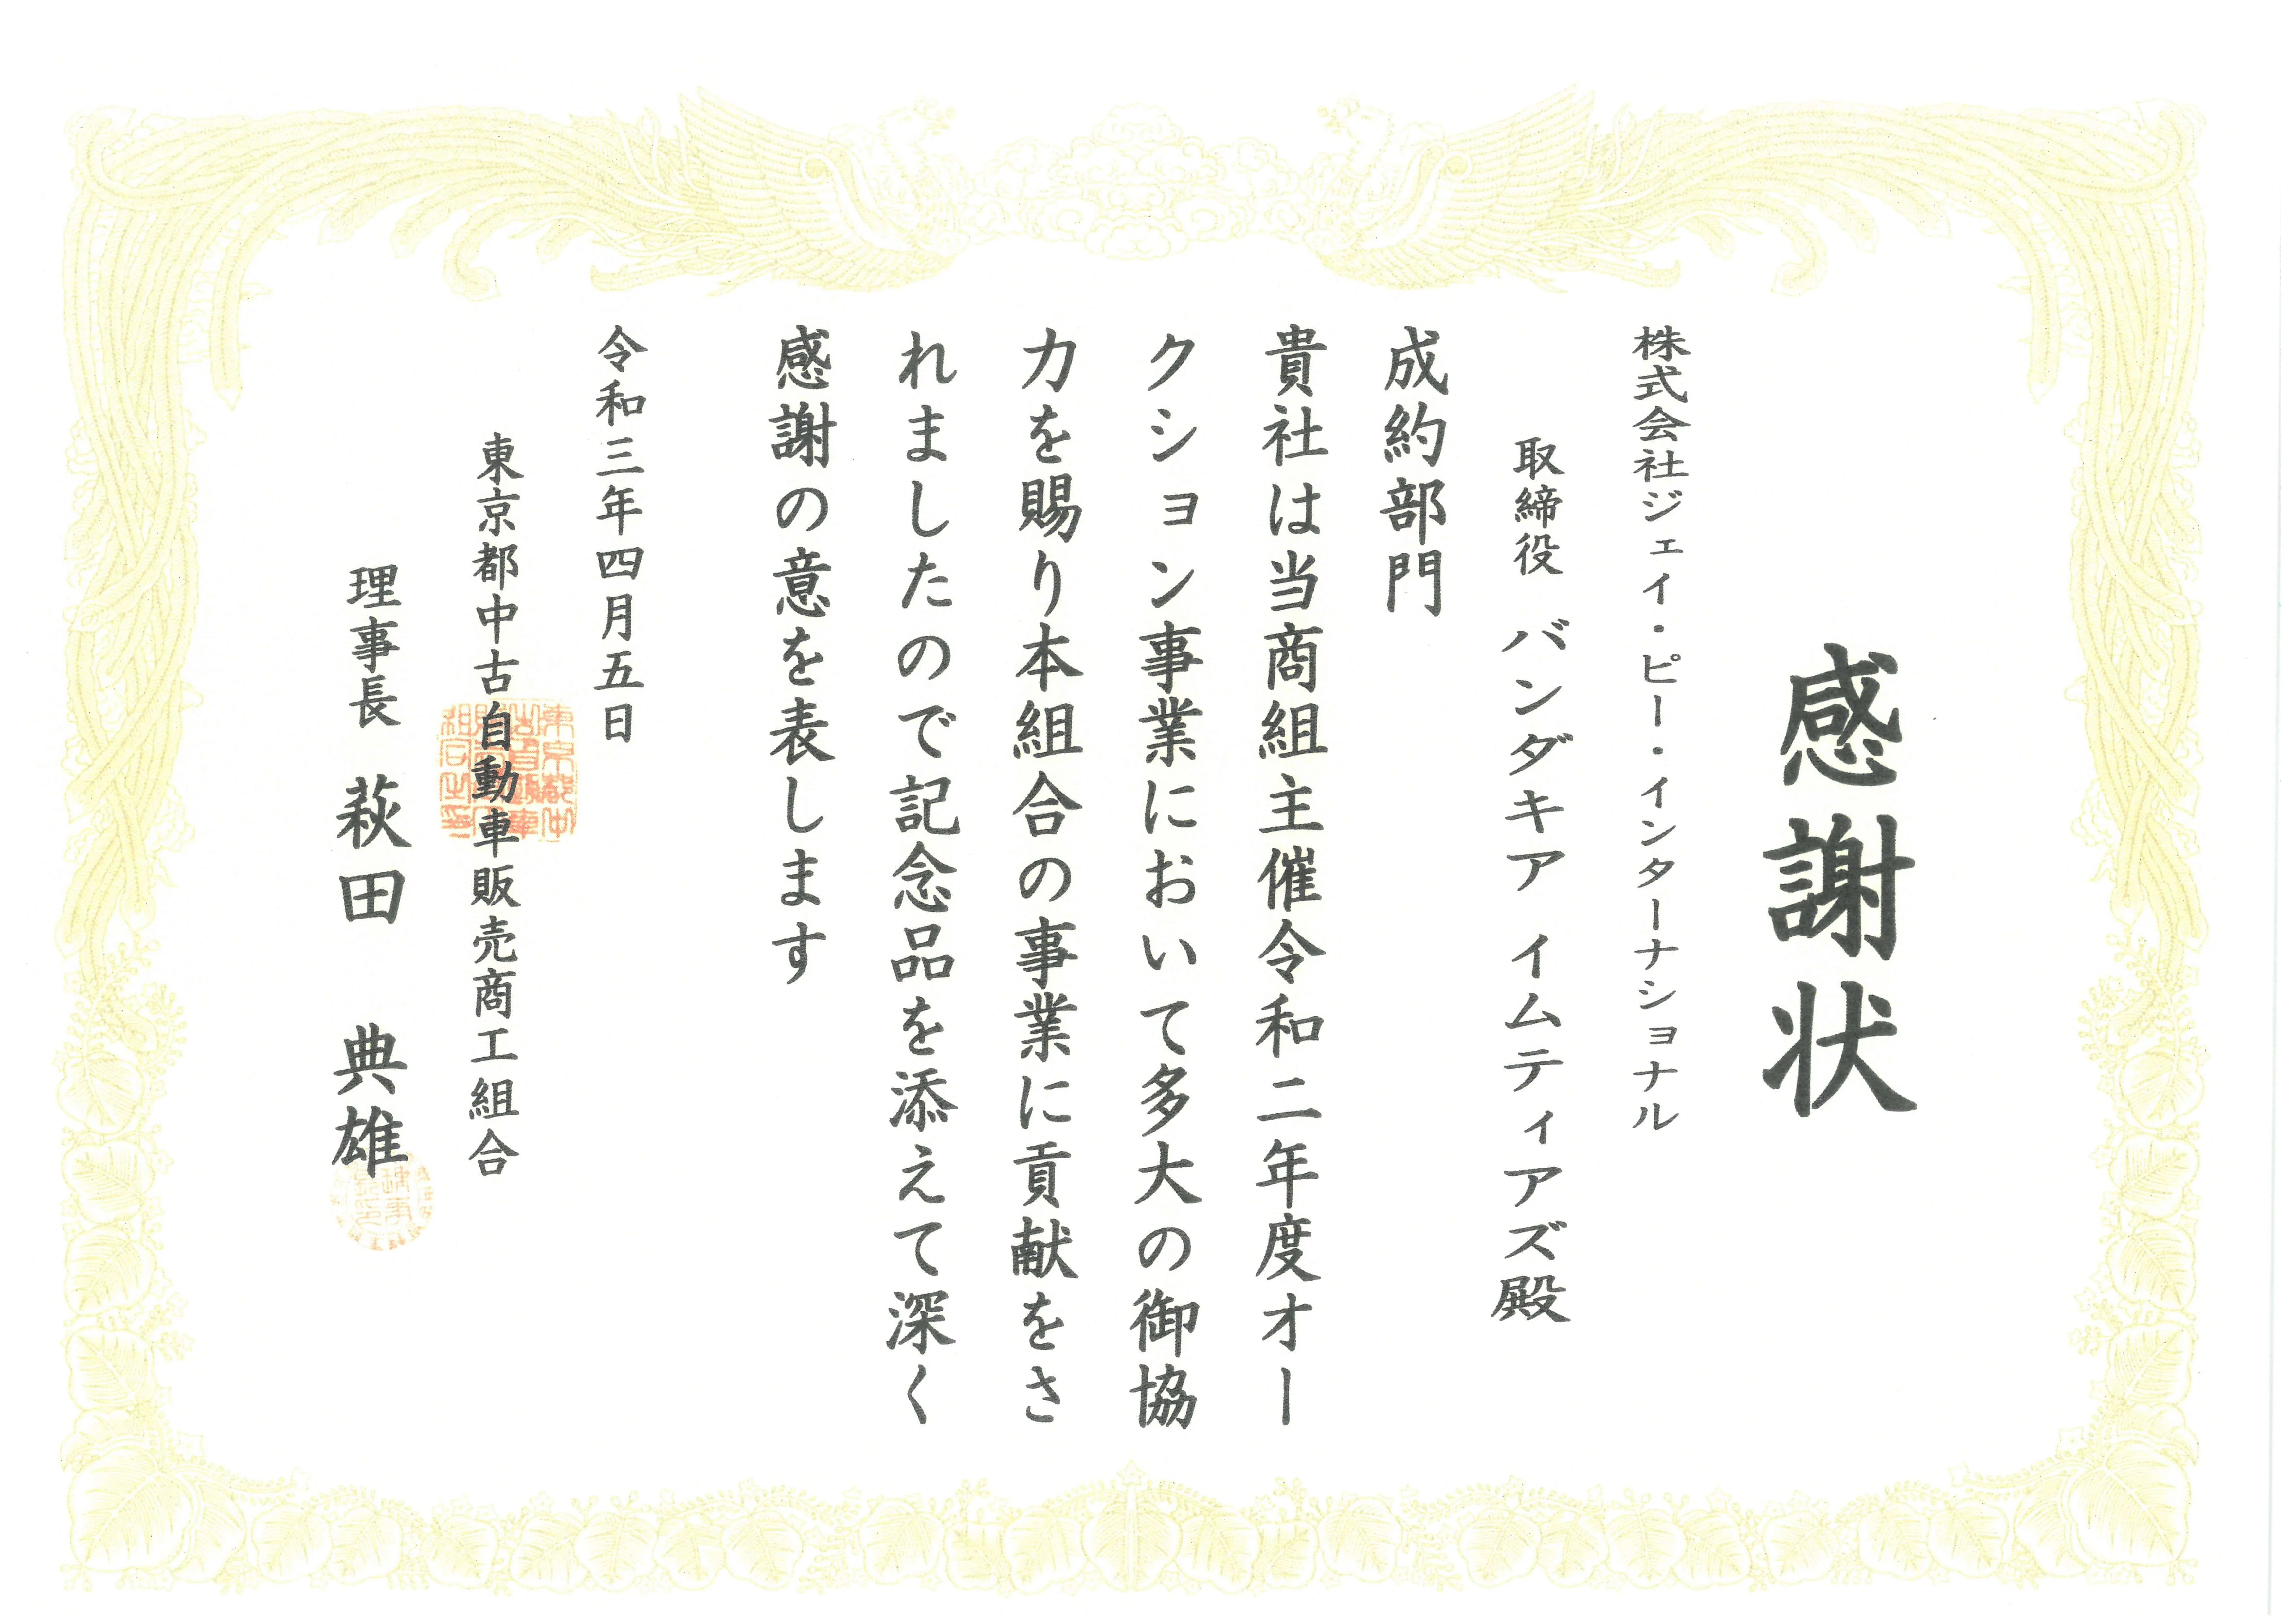 感謝状
株式会社ジェイ・ピー・インターナショナル
取締役 バンダキア イムティアズ殿
成約部門
貴社は当商組主催令和二年度オー
クション事業において多大の御協
力を賜り本組合の事業に貢献をさ
れましたので記念品を添えて深く
感謝の意を表します
令和三年四月五日
東京都中古自動車販売商工組合
理事長 萩田 典雄